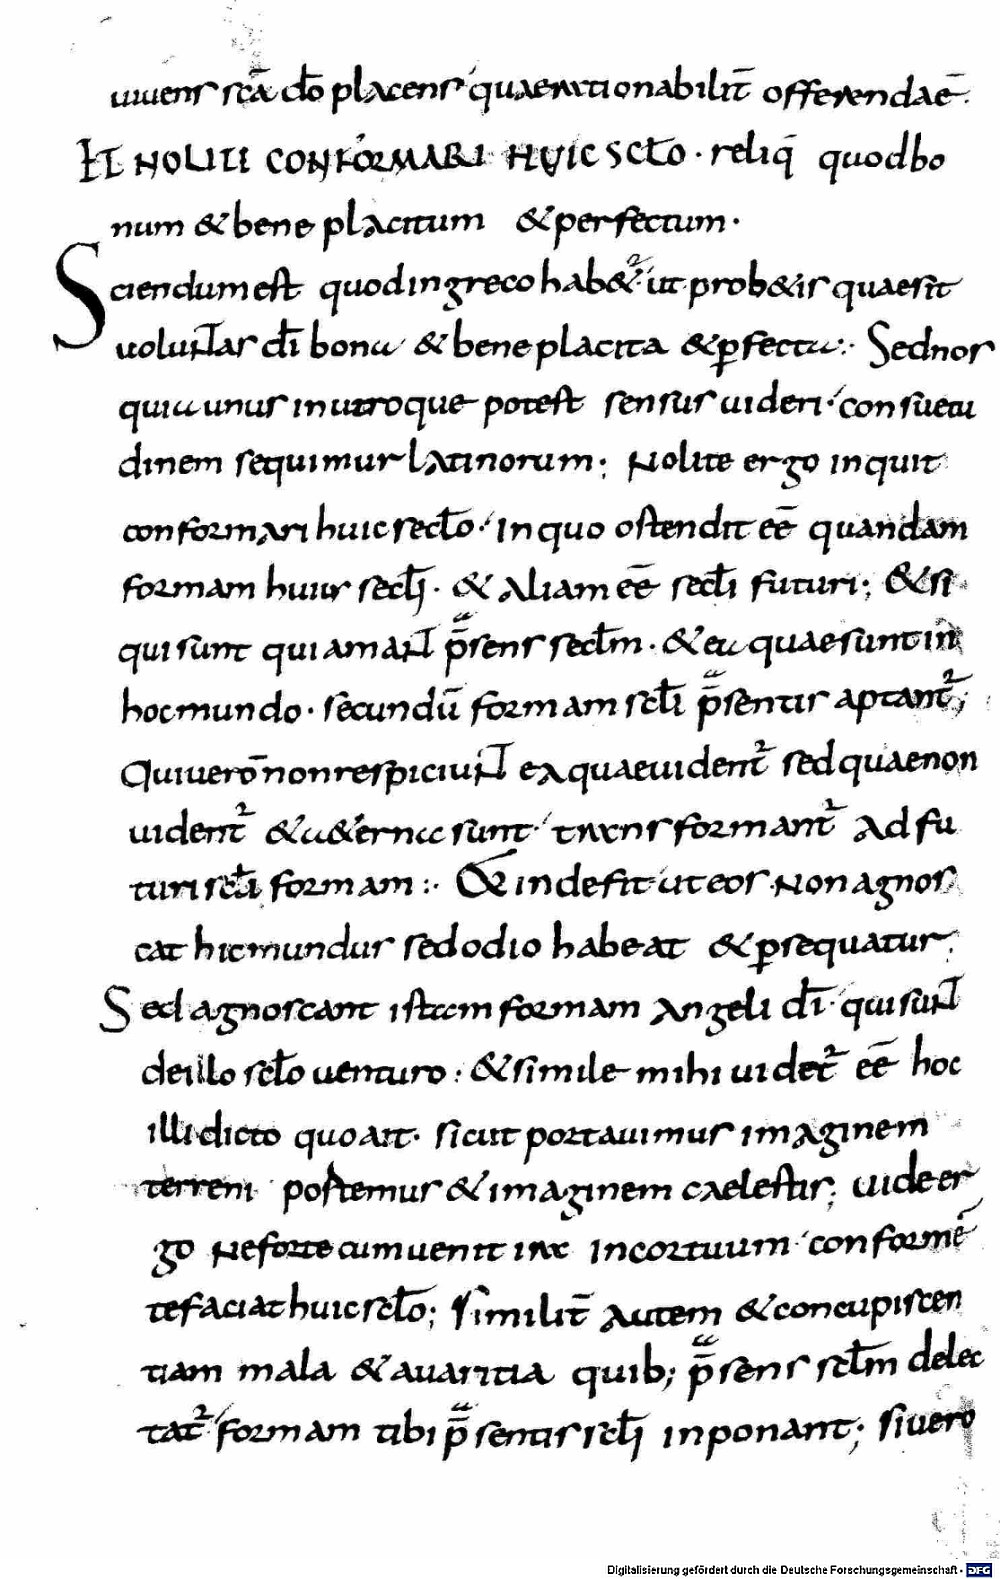 uiuens sc̄a dō placens quae rationabilit̄ offerenda ē.
ET NOLITI CONFORMARI HUIC SCŁO · reliq̄ quod bo
num & bene placitum & perfectum ·
Sciendum est quod in greco hab&ur ut prob&is quae sit
uoluntas dī bona & bene placita & ꝑfecta:· Sed nos
quia unus in utroque potest sensus uideri · consuetu
dinem sequimur latinorum; Nolite ergo inquit
conformari huic secło · In quo ostendit eē quandam
formam huius secłi · & aliam eē secłi futuri; & si
qui sunt qui amant p̄sens secłm · & ea quae sunt in
hoc mundo · secundū formam scłi p̄sentis aptant᷑;
Qui uero non respiciunt ea quae uident᷑ sed quae non
uident᷑ & a&erna sunt · transformant᷑ ad fu
turi scłi formam :· & inde fit ut eos non agnos
cat hic mundus sed odio habeat & ꝑsequatur;
Sed agnoscant istam formam angeli dī · qui sunt
de illo scło uenturo : & simile mihi uidet᷑ eē hoc
illi dicto quo ait · sicut portauimus imaginem
terreni postemus & imaginem caelestis; uide er
go ne forte cum uenit ira in cor tuum · conformē
te faciat huic scło; Similit̄ autem & concupiscen
tiam mala & auaritia quib; p̄sens scłm delec
tat᷑ formam tibi p̄sentis scłi inponant; si uero
Digitalisierung gefördert durch die Deutsche Forschungsgemeinschaft · DFG